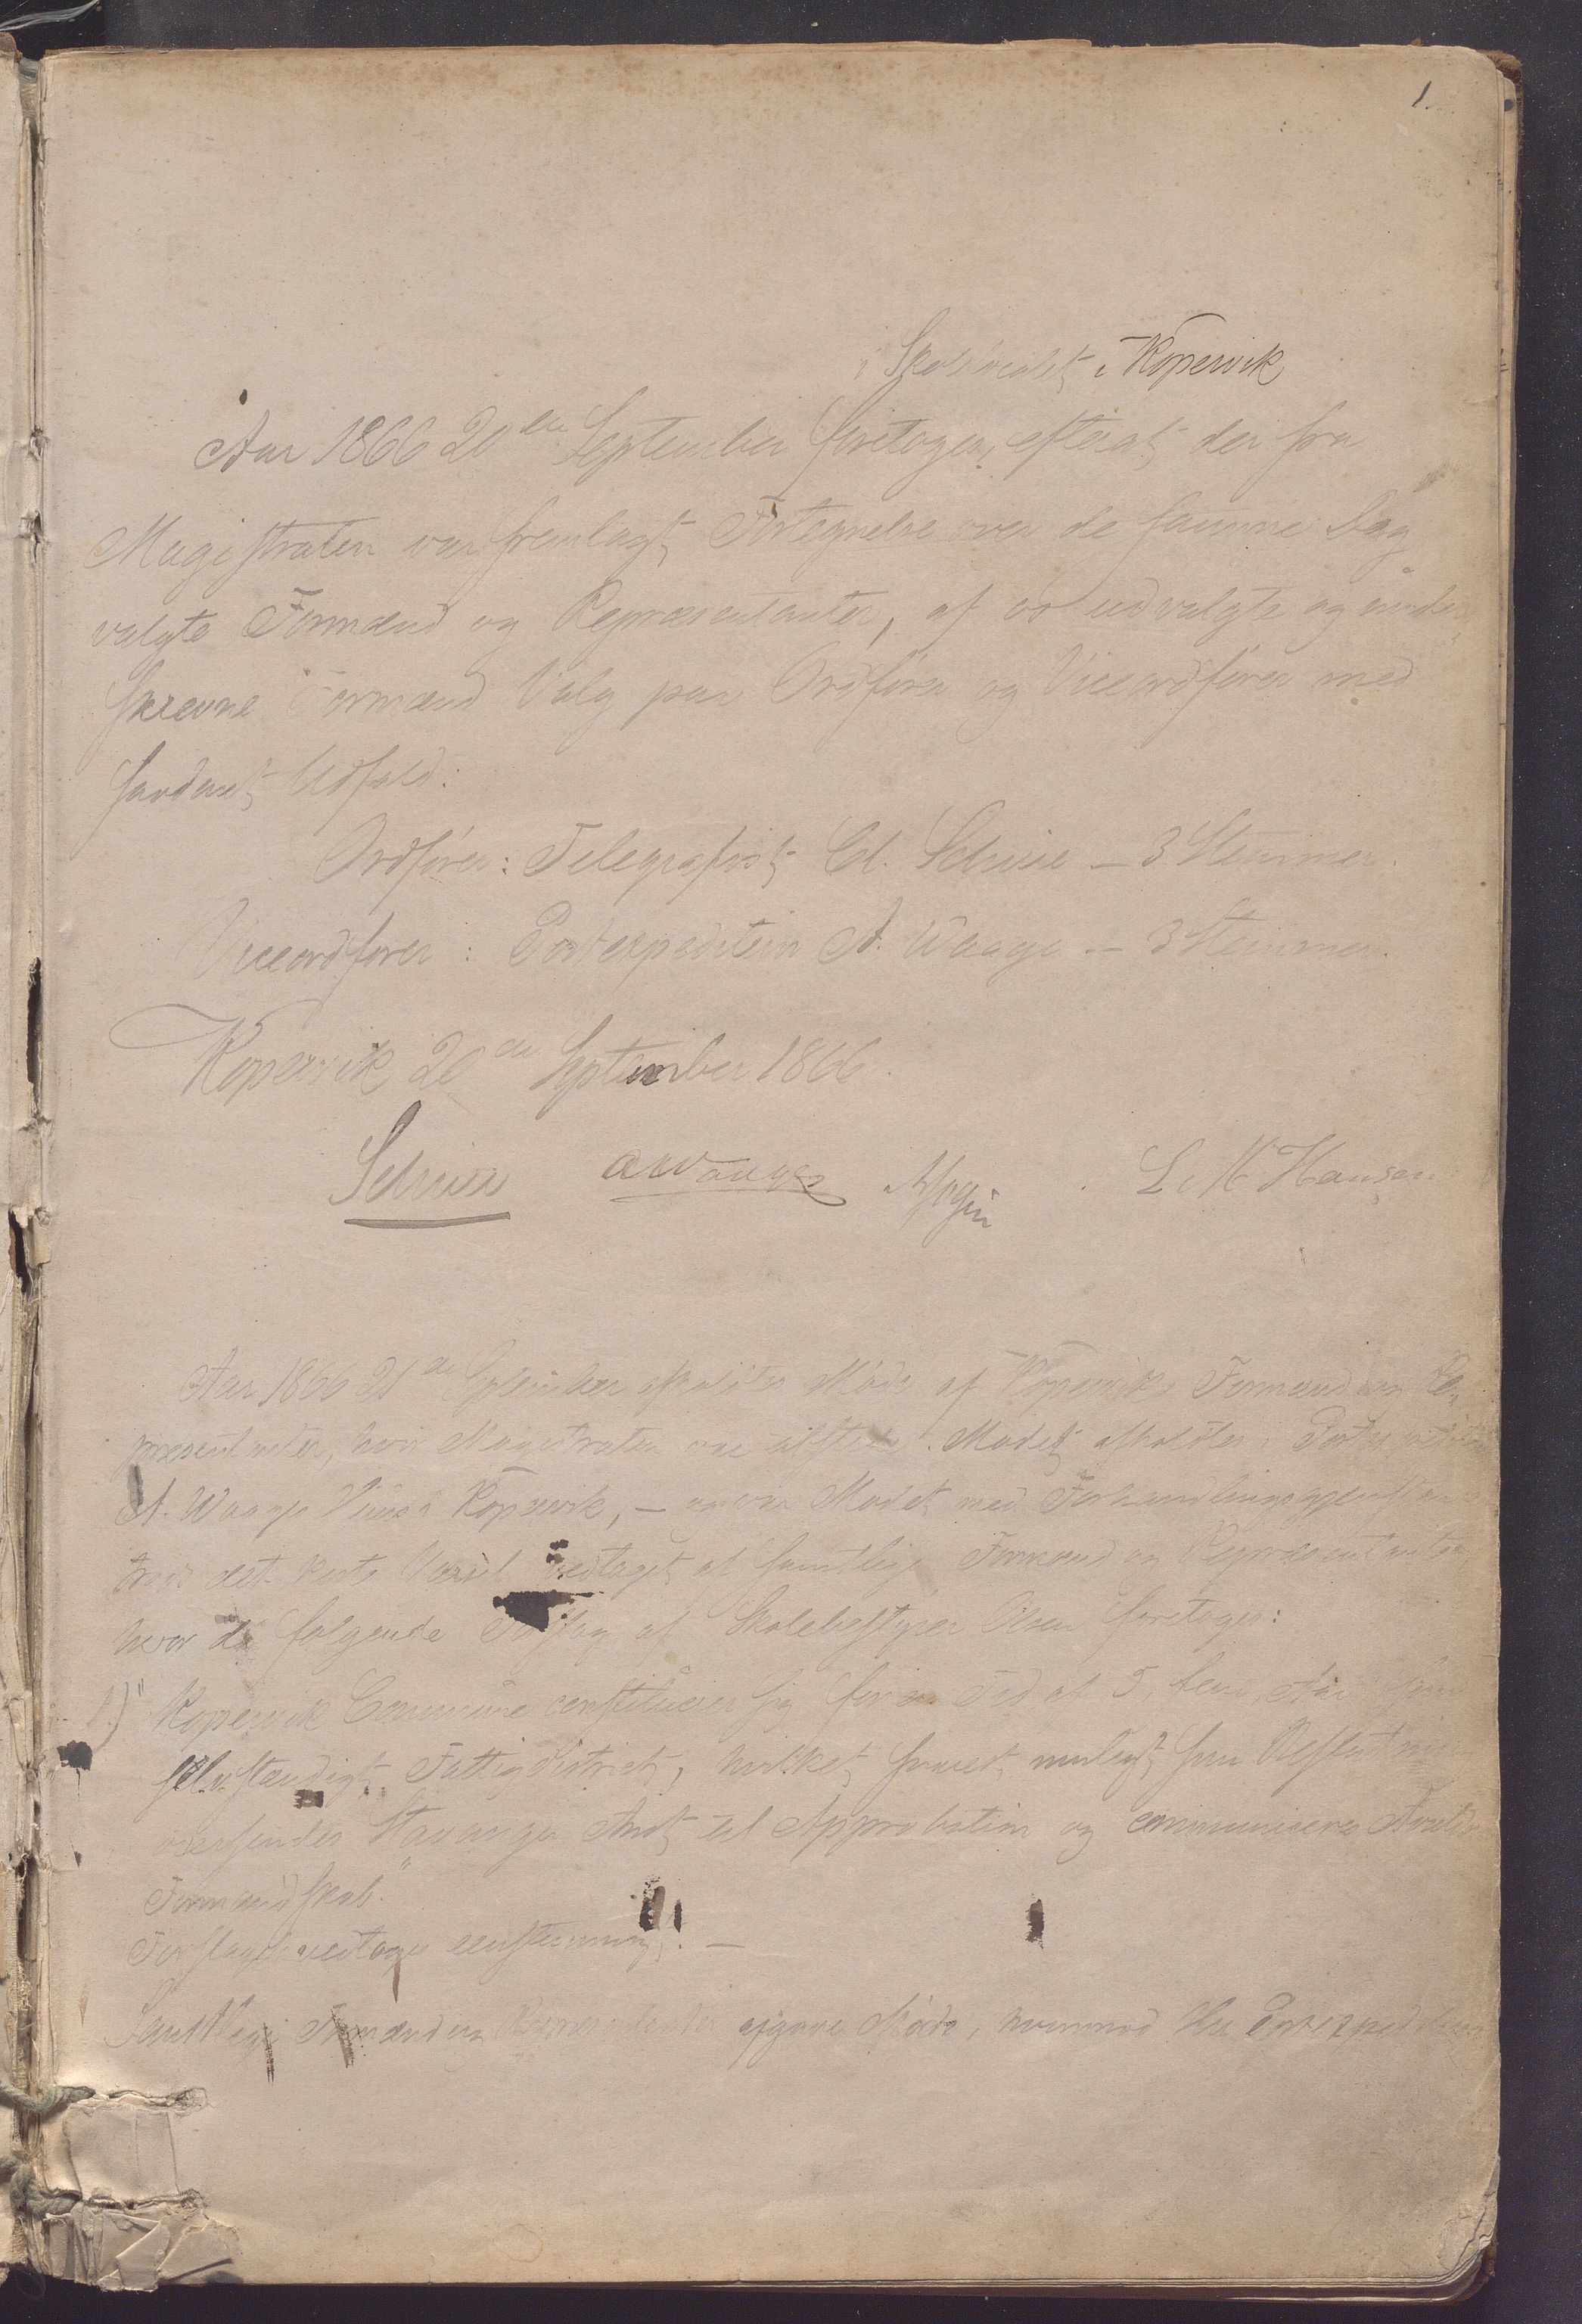 1.
i Skolelocalet i Kopervik
Aar 1866 20de September foretoges, efterat der fra
Magistraten var fremlagt Fortegnelse over de samme Dag
valgte Formænd og Repræsentanter, af os udvalgte og under-
skrevne Formænd Valg paa Ordfører og Viceordfører med
saadant Udfald:
Ordfører: Telegrafist Cl. Schive – 3 Stemmer.
Viceordfører: Postexpeditør A. Waage – 3 Stemmer.
Kopervik 20de September 1866.
Schive AWaage L. M Hansen.
Aar 1866 21de September afholdtes Møde af Koperviks Formænd og Re-
præsentanter, hvor Magistraten var tilstede. Mødet afholdtes i Postexpeditør
A. Waages Huus i Kopervik, – og var Mødet med Forhandlingsgjenstand
trods det korte Varsel vedtaget af samtlige Formænd og Repræsentanter
hvor da følgende Forslag af Skolebestyrer Olsen foretoges:
1) "Kopervik Commune constituerer sig for en Tid af 5, fem, Aar som
selvstændigt Fattigdistrict, hvilket snarest muligt
oversendes Stavanger Amt til Approbation og communiceres
Formandskab."
Forslaget vedtoges eenstemmig. –
Samtlige Formænd og Repræsentanter afgave Møde, hvorimod Hr Postexpeditør